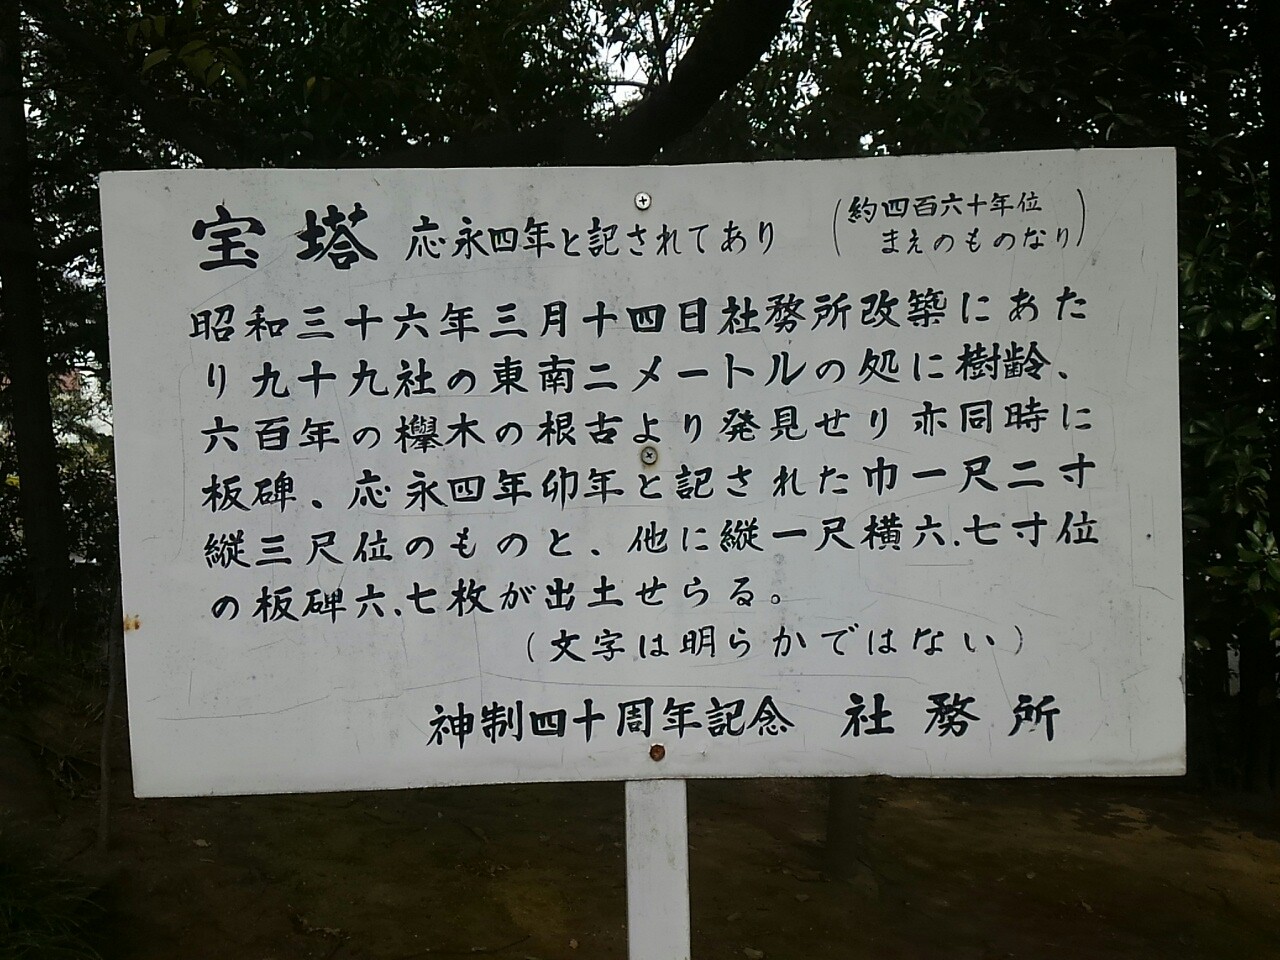 宝塔 応永四年と記されてあり (約四百六十年位
まえのものなり)
昭和三十六年三月十四日社務所改築にあた
り九十九社の東南二メートルの処に樹齢、
六百年の欅木の根古より発見せり亦同時に
板碑、応永四年卯年と記された巾一尺二寸
縦三尺位のものと、他に縦一尺横六、七寸位
の板碑六、七枚が出土せらる。
(文字は明らかではない)
神制四十周年記念 社務所